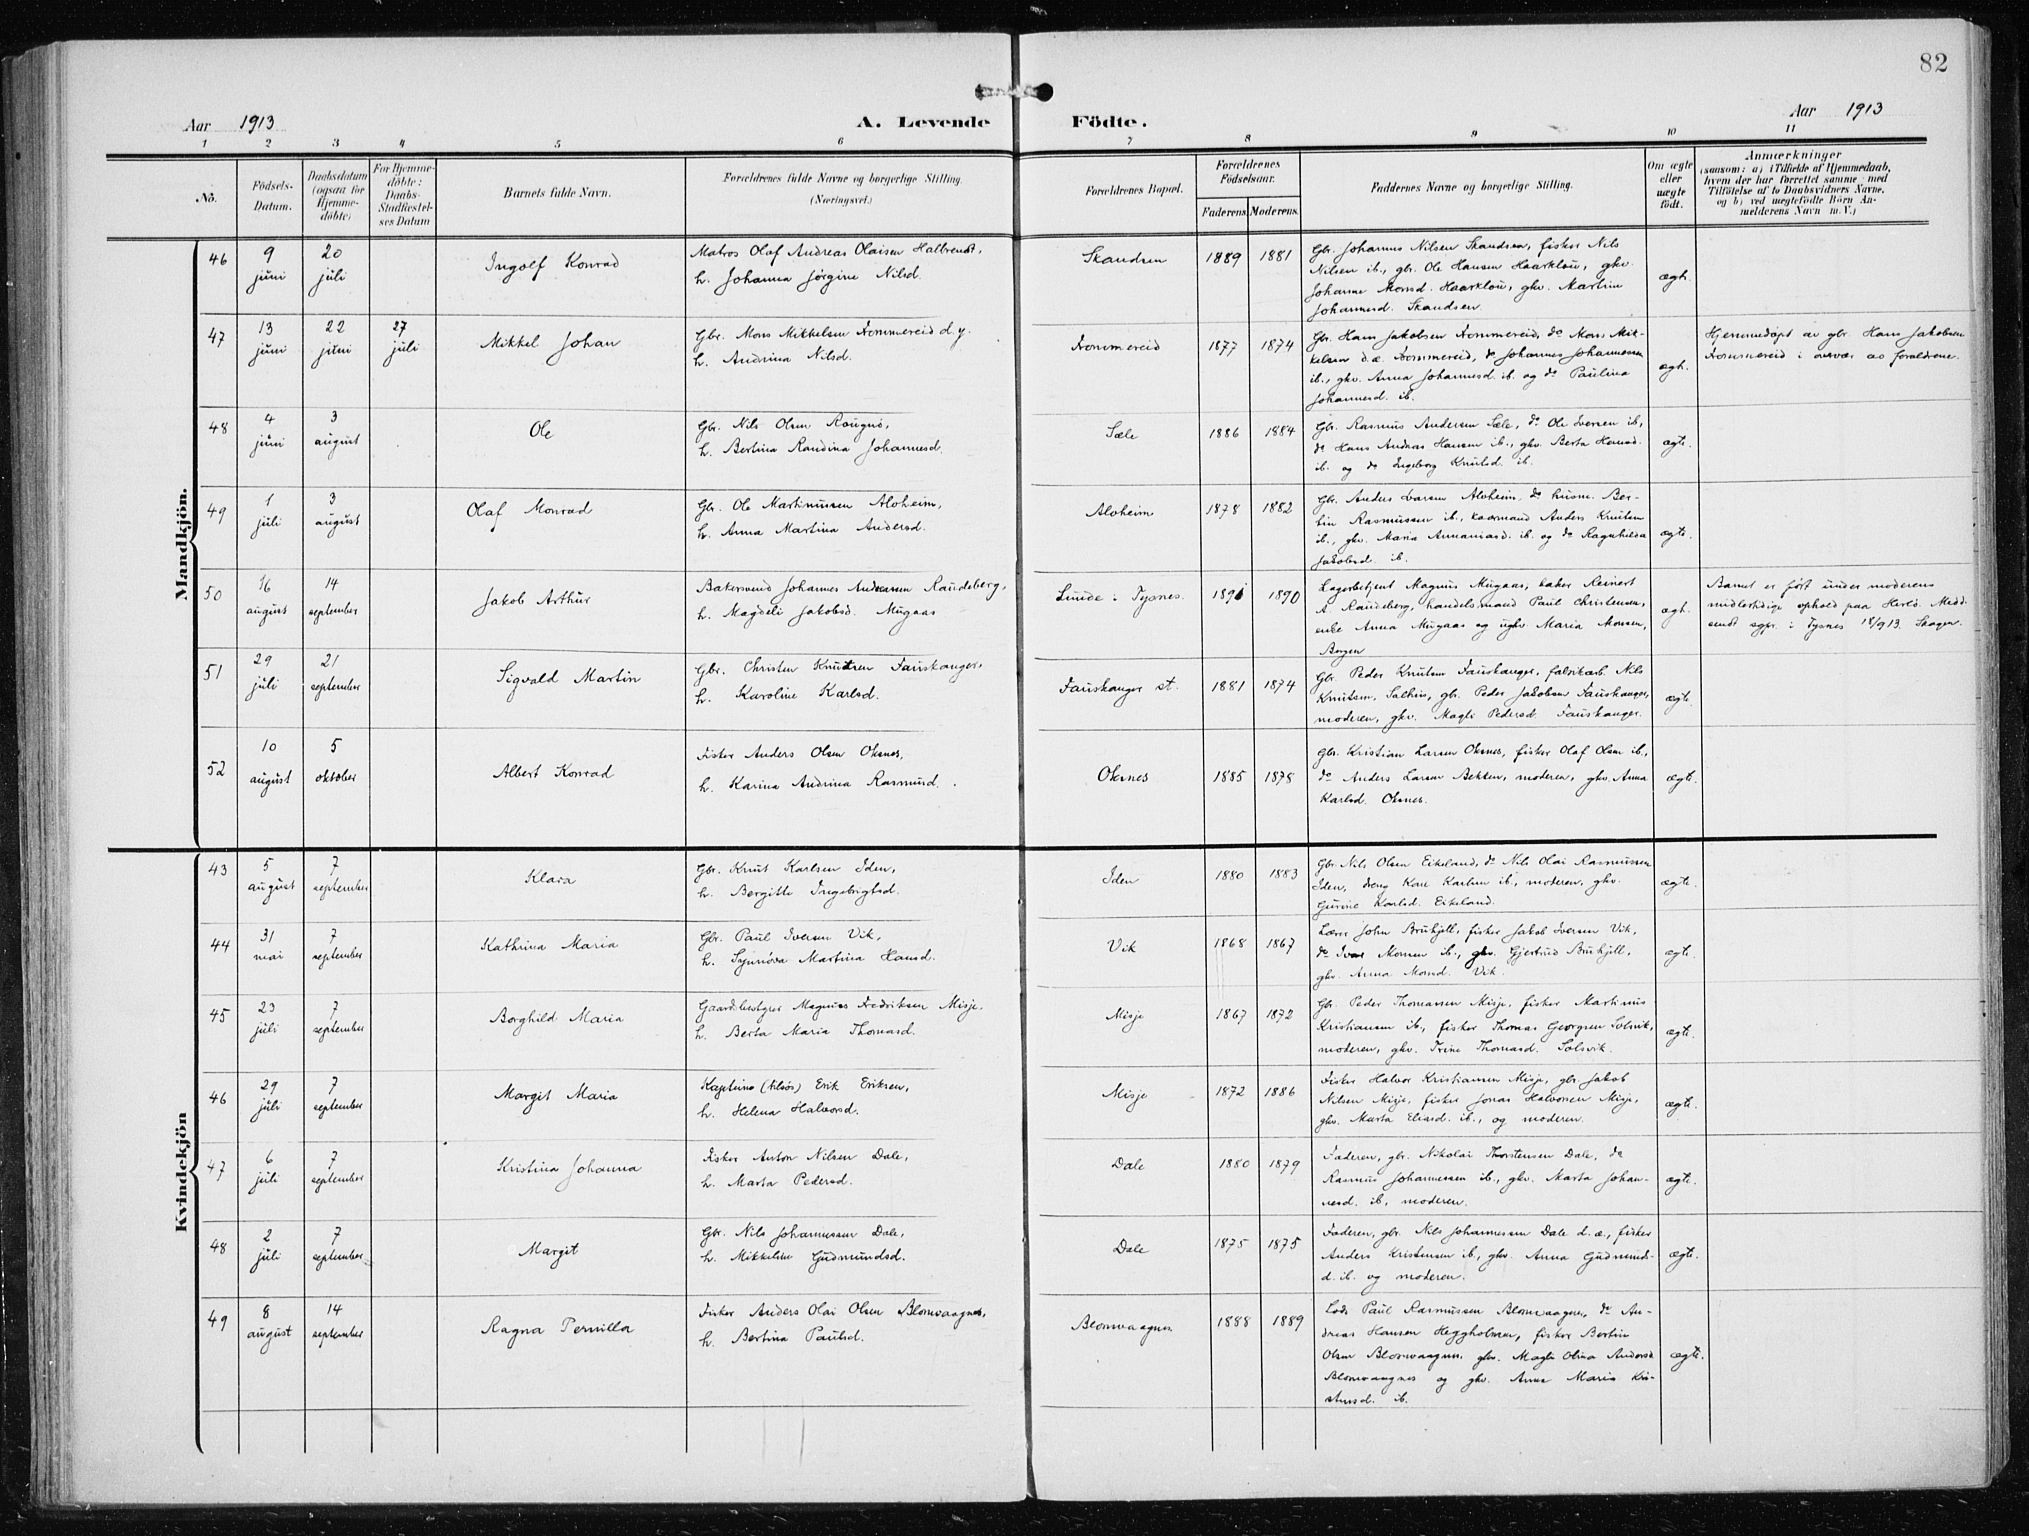 82
Aar 1913
A. Levende Födte.
Aar 1913
1 2 3 4 5 6 7 8 9 10 11
No.
Födsels-Datum.
Daabsdatum (ogsaa for Hjemmedöbte)
For Hjemmedöbte: Daabs-Stadfestelses Datum
Barnets fulde Navn.
Forældrenes fulde Navne og borgerlige Stilling.
(Næringsvei.)
Forældrenes Bopæl.
Forældrenes Födselsaar.
Faderens. Moderens.
Faddernes Navne og borgerlige Stilling.
Om ægte eller uægte födt.
Anmærkninger
(saasom: a) i Tilfælde af Hjemmedaab, hvem der har forrettet samme med Tilföielse af to Daabsvidners Navne, og b) ved uægtefödte Börn Anmelderens Navn m. V.)
Mandkjön.
46
9 juni
20 juli
Ingolf Konrad
Matros Olaf Andreas Olaisen
h. Johanna Jørgine Nilsd.
Skandsen
1889 1881
Gbr. Johannes Nilsen Skandsen, fisker Nils
Nilsen ib., gbr. Ole Hansen Haarklou, gkv.
Johanne Monsd. Haarklou, gkv. Martine
Johannesd. Skandsen
ægt.
47
13 juni
22 juni
27 juli
Mikkel Johan
Gbr. Mons Mikkelsen Tommereid d. y.
h. Andrina Nilsd.
Tommereid
1877 1874
Gbr. Hans Jakobsen Tommereid, do Mons Mik-
kelsen d.æ. Tommereid, do Johannes Johannessen
ib., gkv. Anna Johannesd. ib. og do Paulina
Johannesd. ib.
ægt.
Hjemmedøpt av gbr. Hans Jakobsen
Tommereid i overvær av forældrene.
48
4 juni
3 august
Ole
Gbr. Nils Olsen Rougnø,
h. Bertina Randina Johannesd.
Sæle
1886 1884
Gbr. Rasmus Andersen Sæle, do Ole Iversen ib,
do Hans Andreas Hansen ib., gkv. Berta Hansd.
ib. og do Ingeborg Knutsd. ib.
ægte.
49
1 juli
3 august
Olaf Monrad
Gbr. Ole Martinussen Alvheim,
h. Anna Martina Andersd.
Alvheim
1878 1882
Gbr. Anders Larsen Alvheim, do husm. Ber-
tin Rasmussen ib., kaarmand Anders Knutsen
ib., gkv. Maria Annaniasd. ib. og do Ragnhilda
Jakobsd. ib.
ægte.
50
16 august
14 september
Jakob Arthur
Bakersvend Johannes Andreasen Raudeberg,
h. Magdeli Jakobsd. Mugaas
Lunde i Tysnes.
1891 1890
Lagerbetjent Magnus Mugaas, baker Reinert
A Raudeberg, handelsmand Paul Christensen,
enke Anna Mugaas og ugkv. Maria Monsen,
Bergen
ægt.
Barnet er født under moderens
midlertidige ophold paa Herlø. Medd.
sendt sgpr. i Tysnes 18/9 13. Skagen.
51
29 juli
21 september
Sigvald Martin
Gbr. Christen Knutsen Fauskanger,
h. Karoline Karlsd.
Fauskanger st.
1881 1874
Gbr. Peder Knutsen Fauskanger, fabrikarb. Nils
Knutsen, Salhus, gbr. Peder Jakobsen Fauskanger,
moderen, gkv. Magli Pedersd. Fauskanger.
ægte.
52
10 august
5 oktober
Albert Konrad
Fisker Anders Olsen Oksnes,
h. Karina Andrina Rasmusd.
Oksnes
1885 1878
Gbr. Kristian Larsen Oksnes, fisker Olaf Olsen ib.,
do Anders Larsen Bekken, moderen, gkv. Anna
Karlsd. Oksnes.
ægte.
Kvindekjön
43
5 august
7 september
Klara
Gbr. Knut Karlsen Iden,
h. Bergitte Ingebrigtsd.
Iden
1880 1883
Gbr. Nils Olsen Eikeland, do Nils Olai Rasmussen
Iden, dreng Karl Karlsen ib., moderen, gkv.
Gurine Karlsd. Eikeland.
ægte.
44
31 mai
7 september
Kathrina Maria
Gbr. Paul Iversen Vik,
h. Synnøva Martina Hansd.
Vik
1868 1867
Lærer John Bruhjell, fisker Jakob Iversen Vik,
do Ivar Monsen ib., gkv. Gjertrud Bruhjell,
gkv. Anna Monsd. Vik.
ægte.
45
23 juli
7 september
Borghild Maria
Gaardbestyrer Magnus Fredriksen Misje.
h. Berta Maria Thomasd.
Misje
1867 1872
Gbr. Peder Thomassen Misje, fisker Martinus
Kristiansen ib., fisker Thomas Georgsen Solsvik,
moderen, gkv. Trine Thomasd. Solsvik.
ægte.
46
29 juli
7 september
Margit Maria
Kaptein (tilsös) Erik Eriksen,
h. Helena Halvorsd.
Misje
1872 1886
Fisker Halvor Kristiansen Misje, gbr. Jakob
Nilsen Misje, fisker Jonas Halvorsen Misje,
gkv. Marta Eliasd. ib., og moderen.
ægte.
47
6 juli
7 september
Kristina Johanna
Fisker Anton Nilsen Dale,
h. Marta Pedersd.
Dale
1880 1879
Faderen, gbr. Nikolai Thorstensen Dale, do
Rasmus Johannessen ib., gkv. Marta Johan-
nesd. ib., moderen.
ægte.
48
2 juli
7 september
Margit
Gbr. Nils Johannessen Dale,
h. Mikkeline Gudmundsd.
Dale
1875 1875
Faderen, gbr. Nils Johannessen Dale d.æ., fisker
Anders Kristensen ib., gkv. Anna Gudmunds-
d. ib. og moderen.
ægte.
49
8 august
14 september
Ragna Pernilla
Fisker Anders Olai Olsen Blomvaagnes,
h. Bertina Paulsd.
Blomvaagnes
1888 1889
Lods Paul Rasmussen Blomvaagnes, do An-
dreas Hansen Heggholmen, fisker Bertin
Olsen Blomvaagnes, gkv. Magli Olina Andersd.
Blomvaagnes og gkv. Anne Maria Kri-
stensd. ib.
ægte.